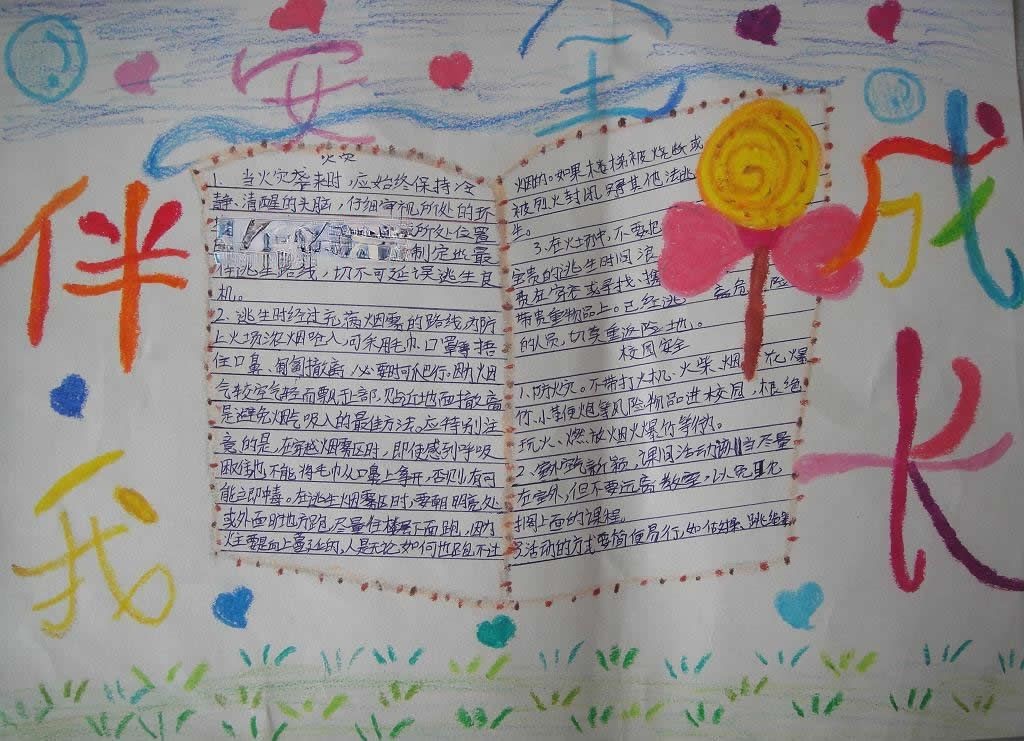 安全
伴我
成长
火灾
1、当火灾袭来时,应始终保持冷
静、清醒的头脑,仔细审视所处的环
所处位置
制定出最
佳逃生路线,切不可延误逃生良
机。
2、逃生时经过充满烟雾的路线,为防
止火场浓烟呛入,可采用毛巾、口罩等捂
住口鼻,匍匐撤离,必要时可爬行。因为烟
气较空气轻而飘于上部,贴近地面撤离
是避免烟气吸入的最佳方法。应特别注
意的是,在穿越烟雾区时,即使感到呼吸
困难也不能将毛巾从口鼻上拿开,否则有可
能立即中毒。在逃生烟雾区时,要朝明亮处
或外面的地方跑,尽量往楼层下面跑,因为
火主要是向上蔓延的,人是无论如何也跑不过
烟的。如果楼梯被烧断或
被烈火封闭,
生。
3、在火场中,不要把
宝贵的逃生时间浪
费在穿衣或寻找、携
带贵重物品上。已经逃 危险
的人员,切莫重返险地。
校园安全
1、防火灾。不带打火机、火柴、烟花爆
竹、小 等 物品进校园,杜绝
玩火、燃放烟火爆竹等
2、 新颖,课间活动 当尽量
在室外,但不要远离教室,以免
面的课程。
活动的方式要简便易行,如做操、跳绳等